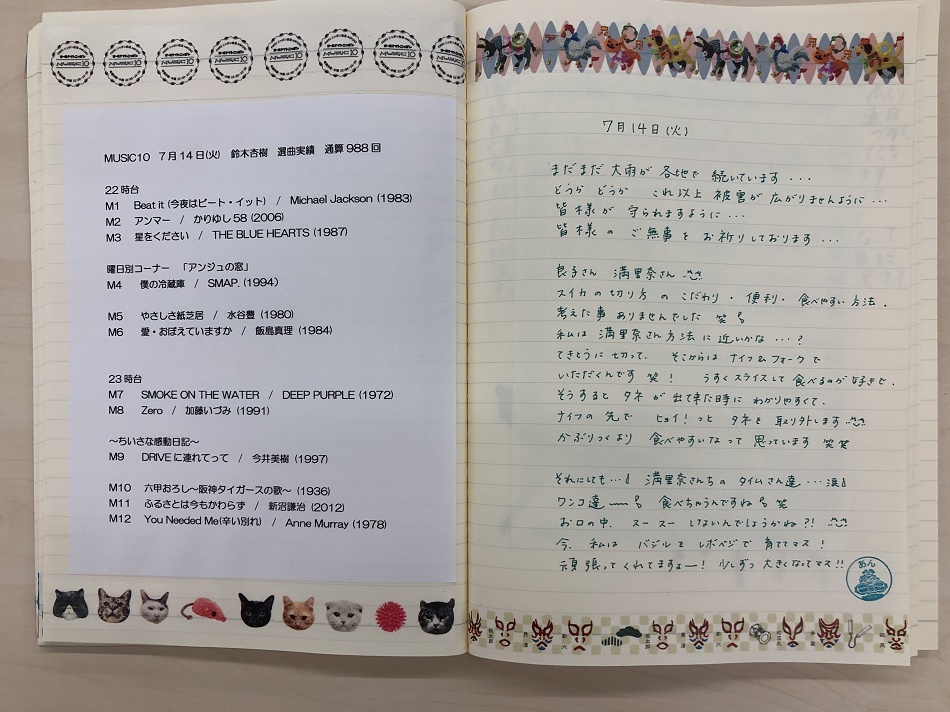 MUSIC10
MUSIC10
MUSIC10
MUSIC10
MUSIC10
MUSIC10
MUSIC10
MUSIC10
MUSIC10 7月14日(火) 鈴木杏樹 選曲実績 通算988回
22時台
M1 Beat it (今夜はビート・イット) / Michael Jackson (1983)
M2 アンマー / かりゆし58 (2006)
M3 星をください / THE BLUE HEARTS (1987)
曜日別コーナー 「アンジュの窓」
M4 僕の冷蔵庫 / SMAP. (1994)
M5 やさしさ紙芝居 / 水谷豊 (1980)
M6 愛・おぼえていますか / 飯島真理 (1984)
23時台
M7 SMOKE ON THE WATER / DEEP PURPLE (1972)
M8 Zero / 加藤いづみ (1991)
～ちいさな感動日記～
M9 DRIVEに連れてって / 今井美樹 (1997)
M10 六甲おろし～阪神タイガースの歌～ (1936)
M11 ふるさとは今もかわらず / 新沼謙治 (2012)
M12 You Needed Me(辛い別れ) / Anne Murray (1978)
7月14日(火)
まだまだ 大雨が 各地で 続いています...
どうか どうか これ以上 被害が 広がりませんように...
皆様が 守られますように...
皆様の ご無事を お祈りしております...
良子さん 満里奈さん
スイカの切り方の こだわり・便利・食べやすい方法.
考えた事 ありませんでした 笑
私は 満里奈さん方法に 近いかな...?
てきとうに 切って. そこからは ナイフ&フォークで
いただくんです 笑! うすくスライスして 食べるのが 好きで.
そうすると タネが 出て来た時に わかりやすくて.
ナイフの先で ヒョイ!っと タネを 取り外します
かぶりつくより 食べやすいな って 思っています 笑笑
それにしても... 満里奈さんちの タイムさん達...涙
ワンコ達 食べちゃうんですね 笑
お口の中. スースー しないんでしょうかね?!
今. 私は バジルと レボベジで 育ててマス!
頑張ってくれてますよー! 少しずつ 大きくなってマス!!
あん